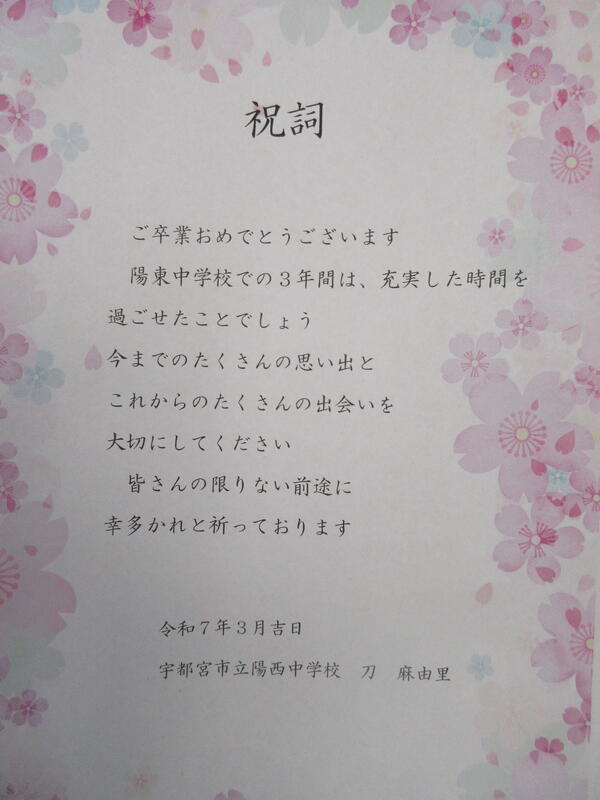 祝詞
ご卒業おめでとうございます
陽東中学校での３年間は、充実した時間を
過ごせたことでしょう
今までのたくさんの思い出と
これからのたくさんの出会いを
大切にしてください
皆さんの限りない前途に
幸多かれと祈っております
令和７年３月吉日
宇都宮市立陽西中学校　刀　麻由里